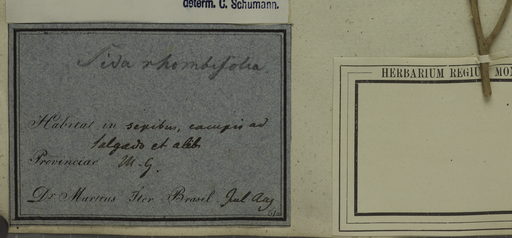 determ. C. Schumann.
Sida rhombifolia.
Habitat in sepibus, campis ad
Salgado et alib
Provinciae M. G.
Dr. Martius Iter Brasil Jul Aug
HERBARIUM REGIUM MON